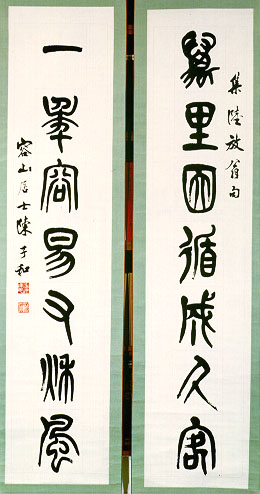 集陸放翁句
萬里因循成久客
一年容易又秋風
容山居士陳子和